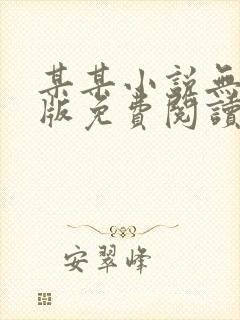 某某小說無
版免費閱讀
安翠峰